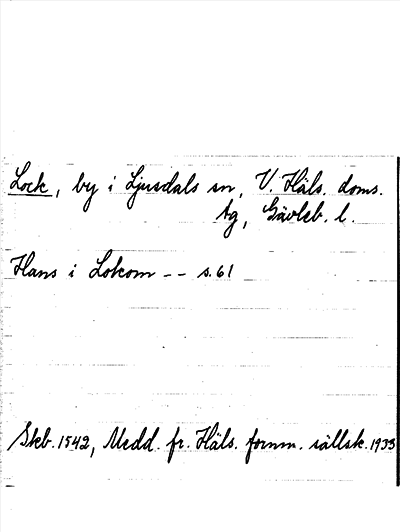 Lock, by i Ljusdals sn, V. Häls. doms.
tg, Gävleb. l.
Hans i Lokom -- s. 61
Skb. 1542, Medd. fr. Häls. fornm. sällsk. 1933